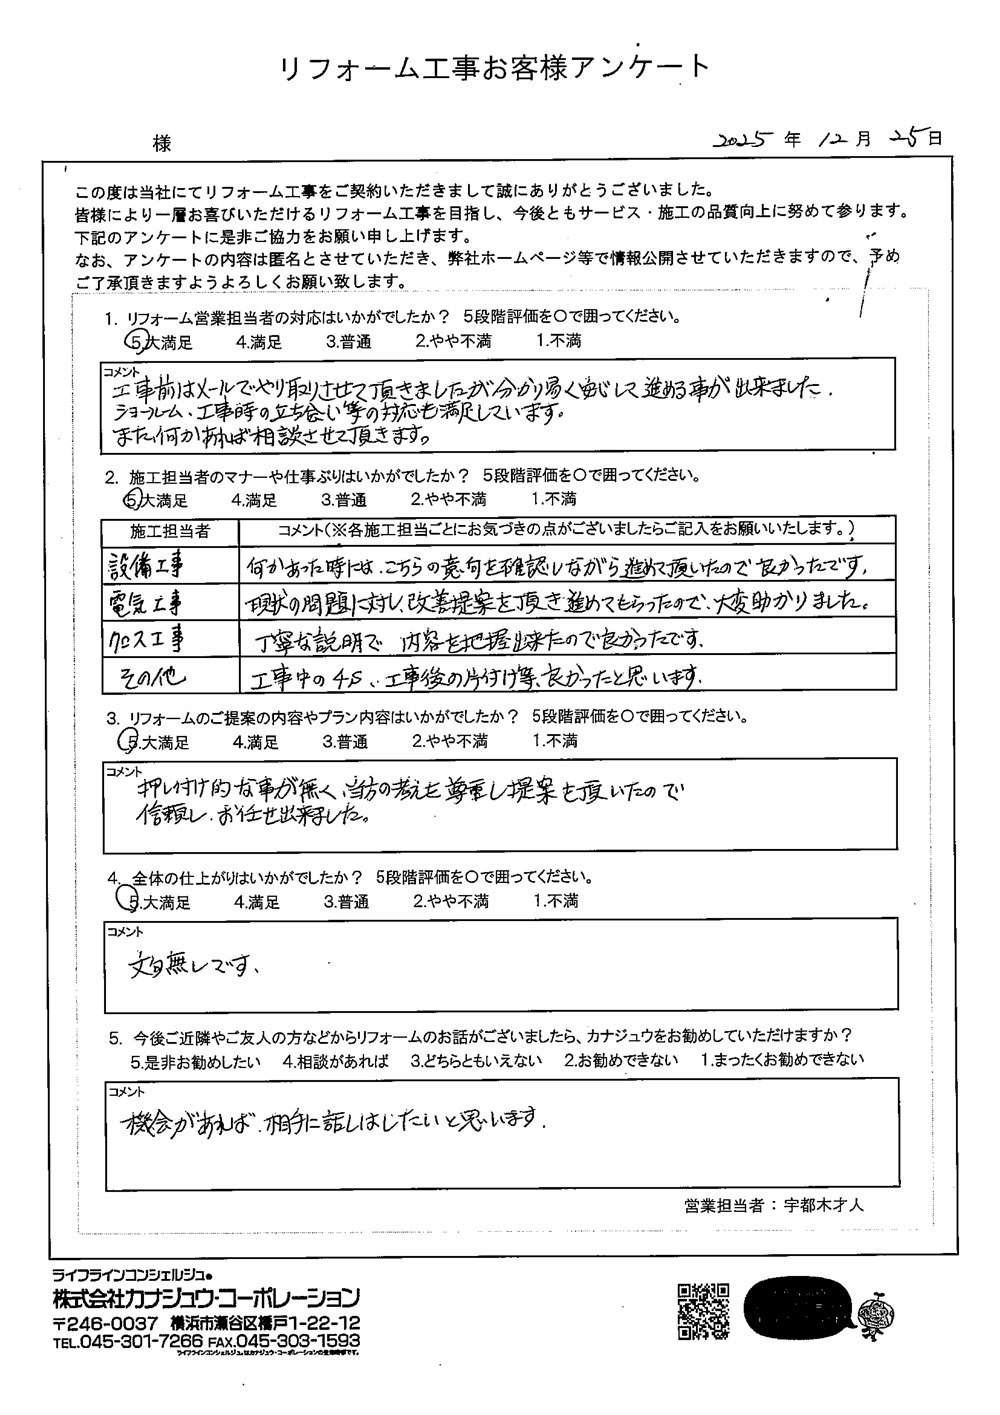 リフォーム工事お客様アンケート
様
2025年 12月 25日
この度は当社にてリフォーム工事をご契約いただきまして誠にありがとうございました。
皆様により一層お喜びいただけるリフォーム工事を目指し、今後ともサービス・施工の品質向上に努めて参ります。
下記のアンケートに是非ご協力をお願い申し上げます。
なお、アンケートの内容は匿名とさせていただき、弊社ホームページ等で情報公開させていただきますので、予め
ご了承頂きますようよろしくお願い致します。
1. リフォーム営業担当者の対応はいかがでしたか? 5段階評価を○で囲ってください。
5.大満足 4.満足 3.普通 2.やや不満 1.不満
コメント
工事前はメールでやり取りさせて頂きましたが分かり易く安心して進める事が出来ました.
ショールーム、工事時の立ち会い等の対応も満足しています。
また何かあれば相談させて頂きます。
2. 施工担当者のマナーや仕事ぶりはいかがでしたか? 5段階評価を○で囲ってください。
5.大満足 4.満足 3.普通 2.やや不満 1.不満
施工担当者 コメント(※各施工担当ごとにお気づきの点がございましたらご記入をお願いいたします。)
設備工事 何かあった時には、こちらの意向を確認しながら進めて頂いたので良かったです.
電気工事 現状の問題に対し、改善提案を頂き進めてもらったので、大変助かりました。
クロス工事 丁寧な説明で 内容を把握出来たので良かったです.
その他 工事中の4S、工事後の片付け等、良かったと思います.
3. リフォームのご提案の内容やプラン内容はいかがでしたか? 5段階評価を○で囲ってください。
5.大満足 4.満足 3.普通 2.やや不満 1.不満
コメント
押し付け的な事が無く、当方の考えを尊重し提案を頂いたので
信頼し、お任せ出来ました。
4. 全体の仕上がりはいかがでしたか? 5段階評価を○で囲ってください。
5.大満足 4.満足 3.普通 2.やや不満 1.不満
コメント
文句無しです、
5. 今後ご近隣やご友人の方などからリフォームのお話がございましたら、カナジュウをお勧めしていただけますか?
5.是非お勧めしたい 4.相談があれば 3.どちらともいえない 2.お勧めできない 1.まったくお勧めできない
コメント
機会があれば、相手に話しはしたいと思います.
営業担当者:宇都木才人
ライフラインコンシェルジュ。
株式会社カナジュウ・コーポレーション
〒246-0037 横浜市瀬谷区橋戸1-22-12
TEL.045-301-7266 FAX.045-303-1593
ライフラインコンシェルジュ。はカナジュウ・コーポレーションの登録商標です。